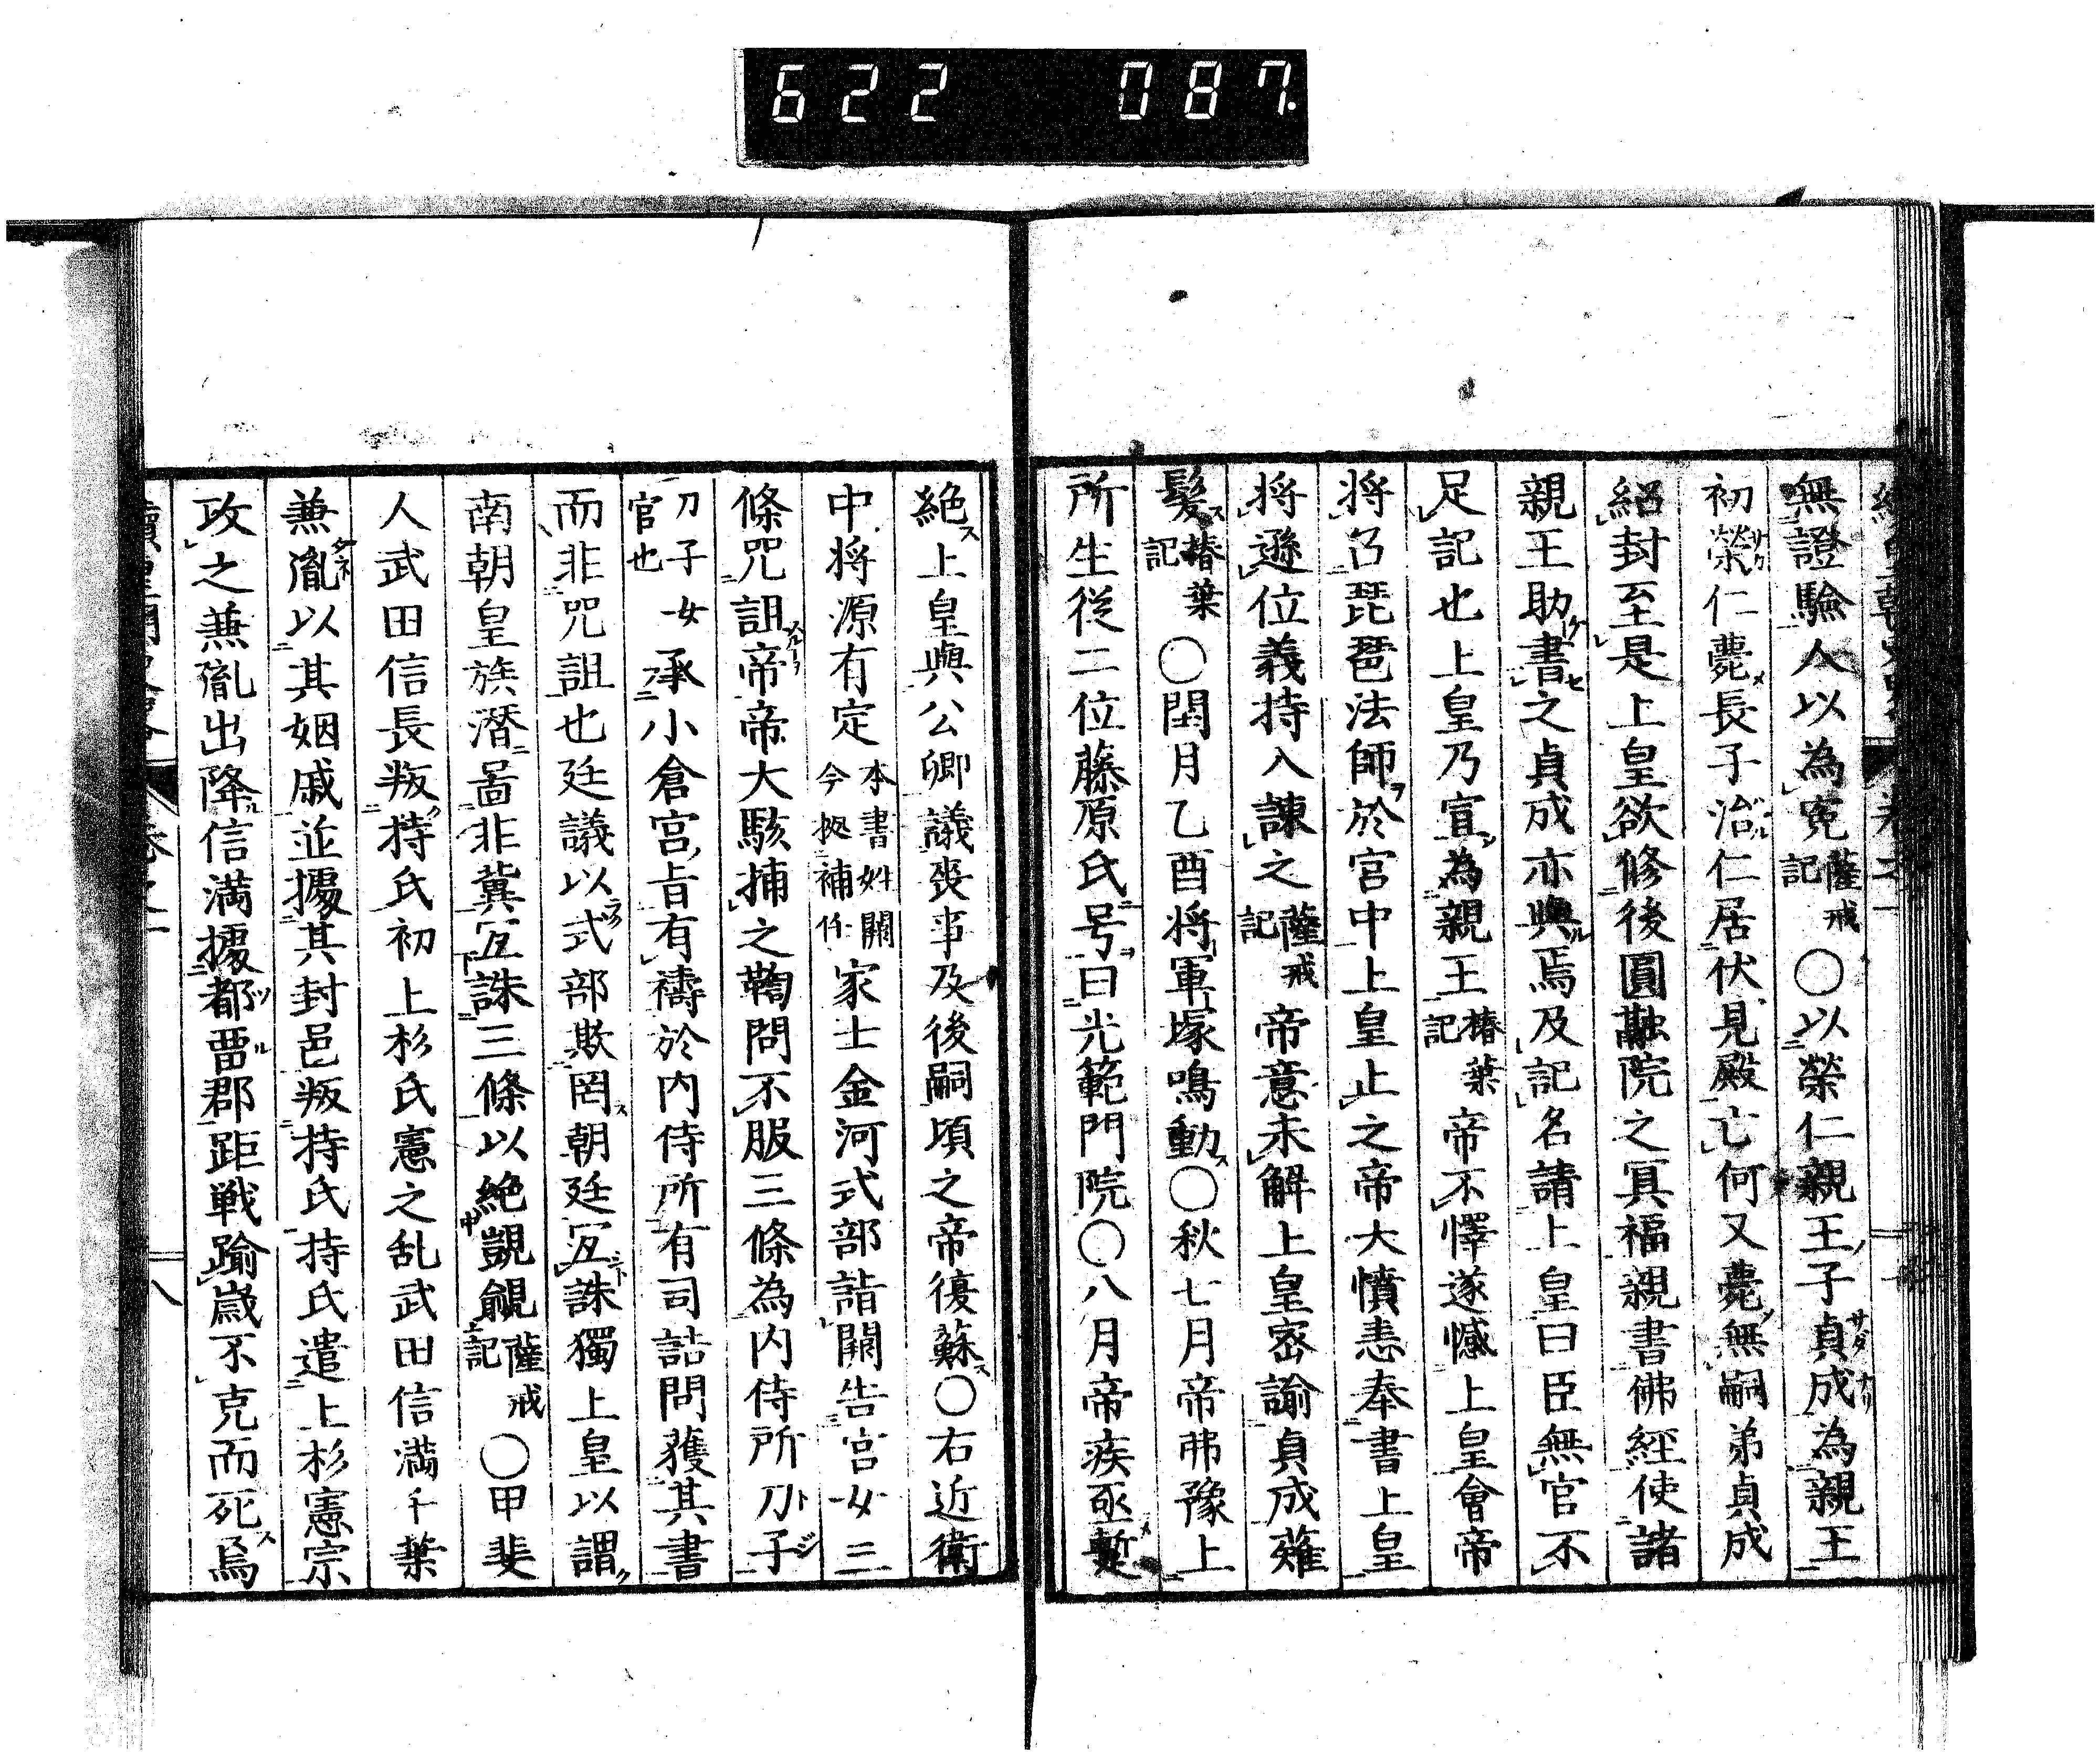 622 087
無證驗人以為寃薩戒記〇以榮仁親王子貞成為親王
初榮仁薨長子治仁居伏見殿亡何又薨無嗣弟貞成
紹封至是上皇欲修後圓融院之冥福親書佛經使諸
親王助書之貞成亦與焉及記名請上皇曰臣無官不
足記也上皇乃宣為親王椿葉記帝不懌遂憾上皇會帝
将召琵琶法師於宮中上皇止之帝大憤恚奉書上皇
将遜位義持入諫之薩戒記帝意未解上皇密諭貞成薙
髮椿葉記〇閏月乙酉将軍塚鳴動〇秋七月帝弗豫上
所生從二位藤原氏号曰光範門院〇八月帝疾亟暫
絶上皇與公卿議喪事及後嗣頃之帝復蘇〇右近衛
中将源有定本書姓闕今據補任家士金河式部詣闕告宮女三
條咒詛帝帝大駭捕之鞫問不服三條為内侍所刀子
刀子女官也承小倉宮旨有禱於内侍所有司詰問獲其書
而非咒詛也廷議以式部欺罔朝廷冝誅獨上皇以謂
南朝皇族潜啚非冀冝誅三條以絶覬覦薩戒記〇甲斐
人武田信長叛持氏初上杉氏憲之乱武田信満千葉
兼胤以其姻戚並據其封邑叛持氏持氏遣上杉憲宗
攻之兼胤出降信満據都畱郡距戦踰歳不克而死焉
八